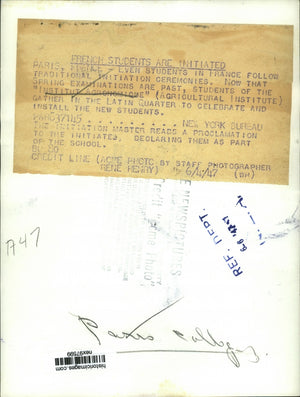 FRENCH STUDENTS ARE INITIATED
PARIS, FRANCE - EVEN STUDENTS IN FRANCE FOLLOW
TRADITIONAL INITIATION CEREMONIES. NOW THAT
SPRING EXAMINATIONS ARE PAST, STUDENTS OF THE
"INSTITUT AGRONOMIQUE" (AGRICULTURAL INSTITUTE)
GATHER IN THE LATIN QUARTER TO CELEBRATE AND
INSTALL THE NEW STUDENTS.
NEW YORK BUREAU
THE INITIATION MASTER READS A PROCLAMATION
TO THE INITIATES, DECLARING THEM AS PART
OF THE SCHOOL.
CREDIT LINE (ACME PHOTO BY STAFF PHOTOGRAPHER
RENE HENRY) 6/4/47 (BM)
REF. DEPT.
A47
Paris
historicimages.com
nex97599